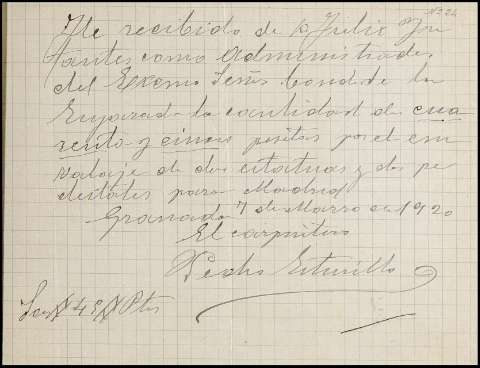 Nº 24
He recibido de D Julio In
fantes como Administrador
del Exemo Señor Conde de la
Enjarada la cantidad de cua
renta y cinco pesetas por el em
valaje de dos estatuas y dos pe
destales para Madrid
Granada 7 de Marzo de 1920
El carpintero
Pedro
Son # 45 # Pts